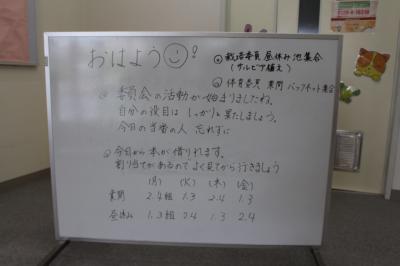 おはよう
◎ 栽培委員 昼休み 池集合
(サルビア植え)
◎ 体育委員 業間 バックネット集合
◎ 委員会の活動が始まりましたね。
自分の役目は しっかりと果たしましょう。
今日の当番の人 忘れずに
◎ 今日から本が借りれます。
割り当てがあるのでよく見てから行きましょう
(月) (火) (木) (金)
業間 2.4組 1.3 2.4 1.3
昼休み 1.3組 2.4 1.3 2.4